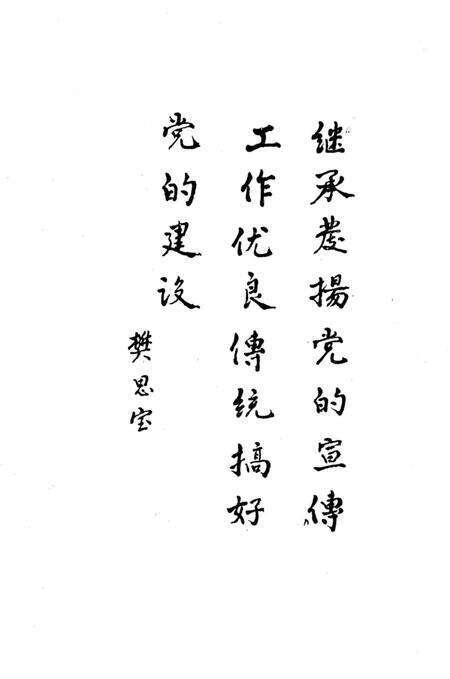 继承发揚党的宣傳
工作优良傳統搞好
党的建设
樊思宝